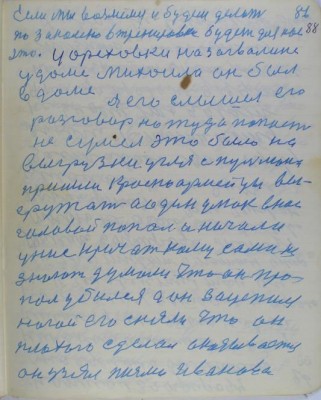 Если мы возмем и будем делат 86
по законно в тренировке будет для нас 88
это. У ореховки на зовалине
у дома Михоила он был
в доме я его слышел его
разговор но туда попаст
не сумел это было на
выгрузки угля с пулмана
пришли Красноармейцы вы-
гружат а один упал вниз
головой попал и начали
унис кричат кому сами н
знают думали что он про-
пол убился а он зацепил
ногой его сняли что он
плохого сделал оказывается
он узял писмо Иванова